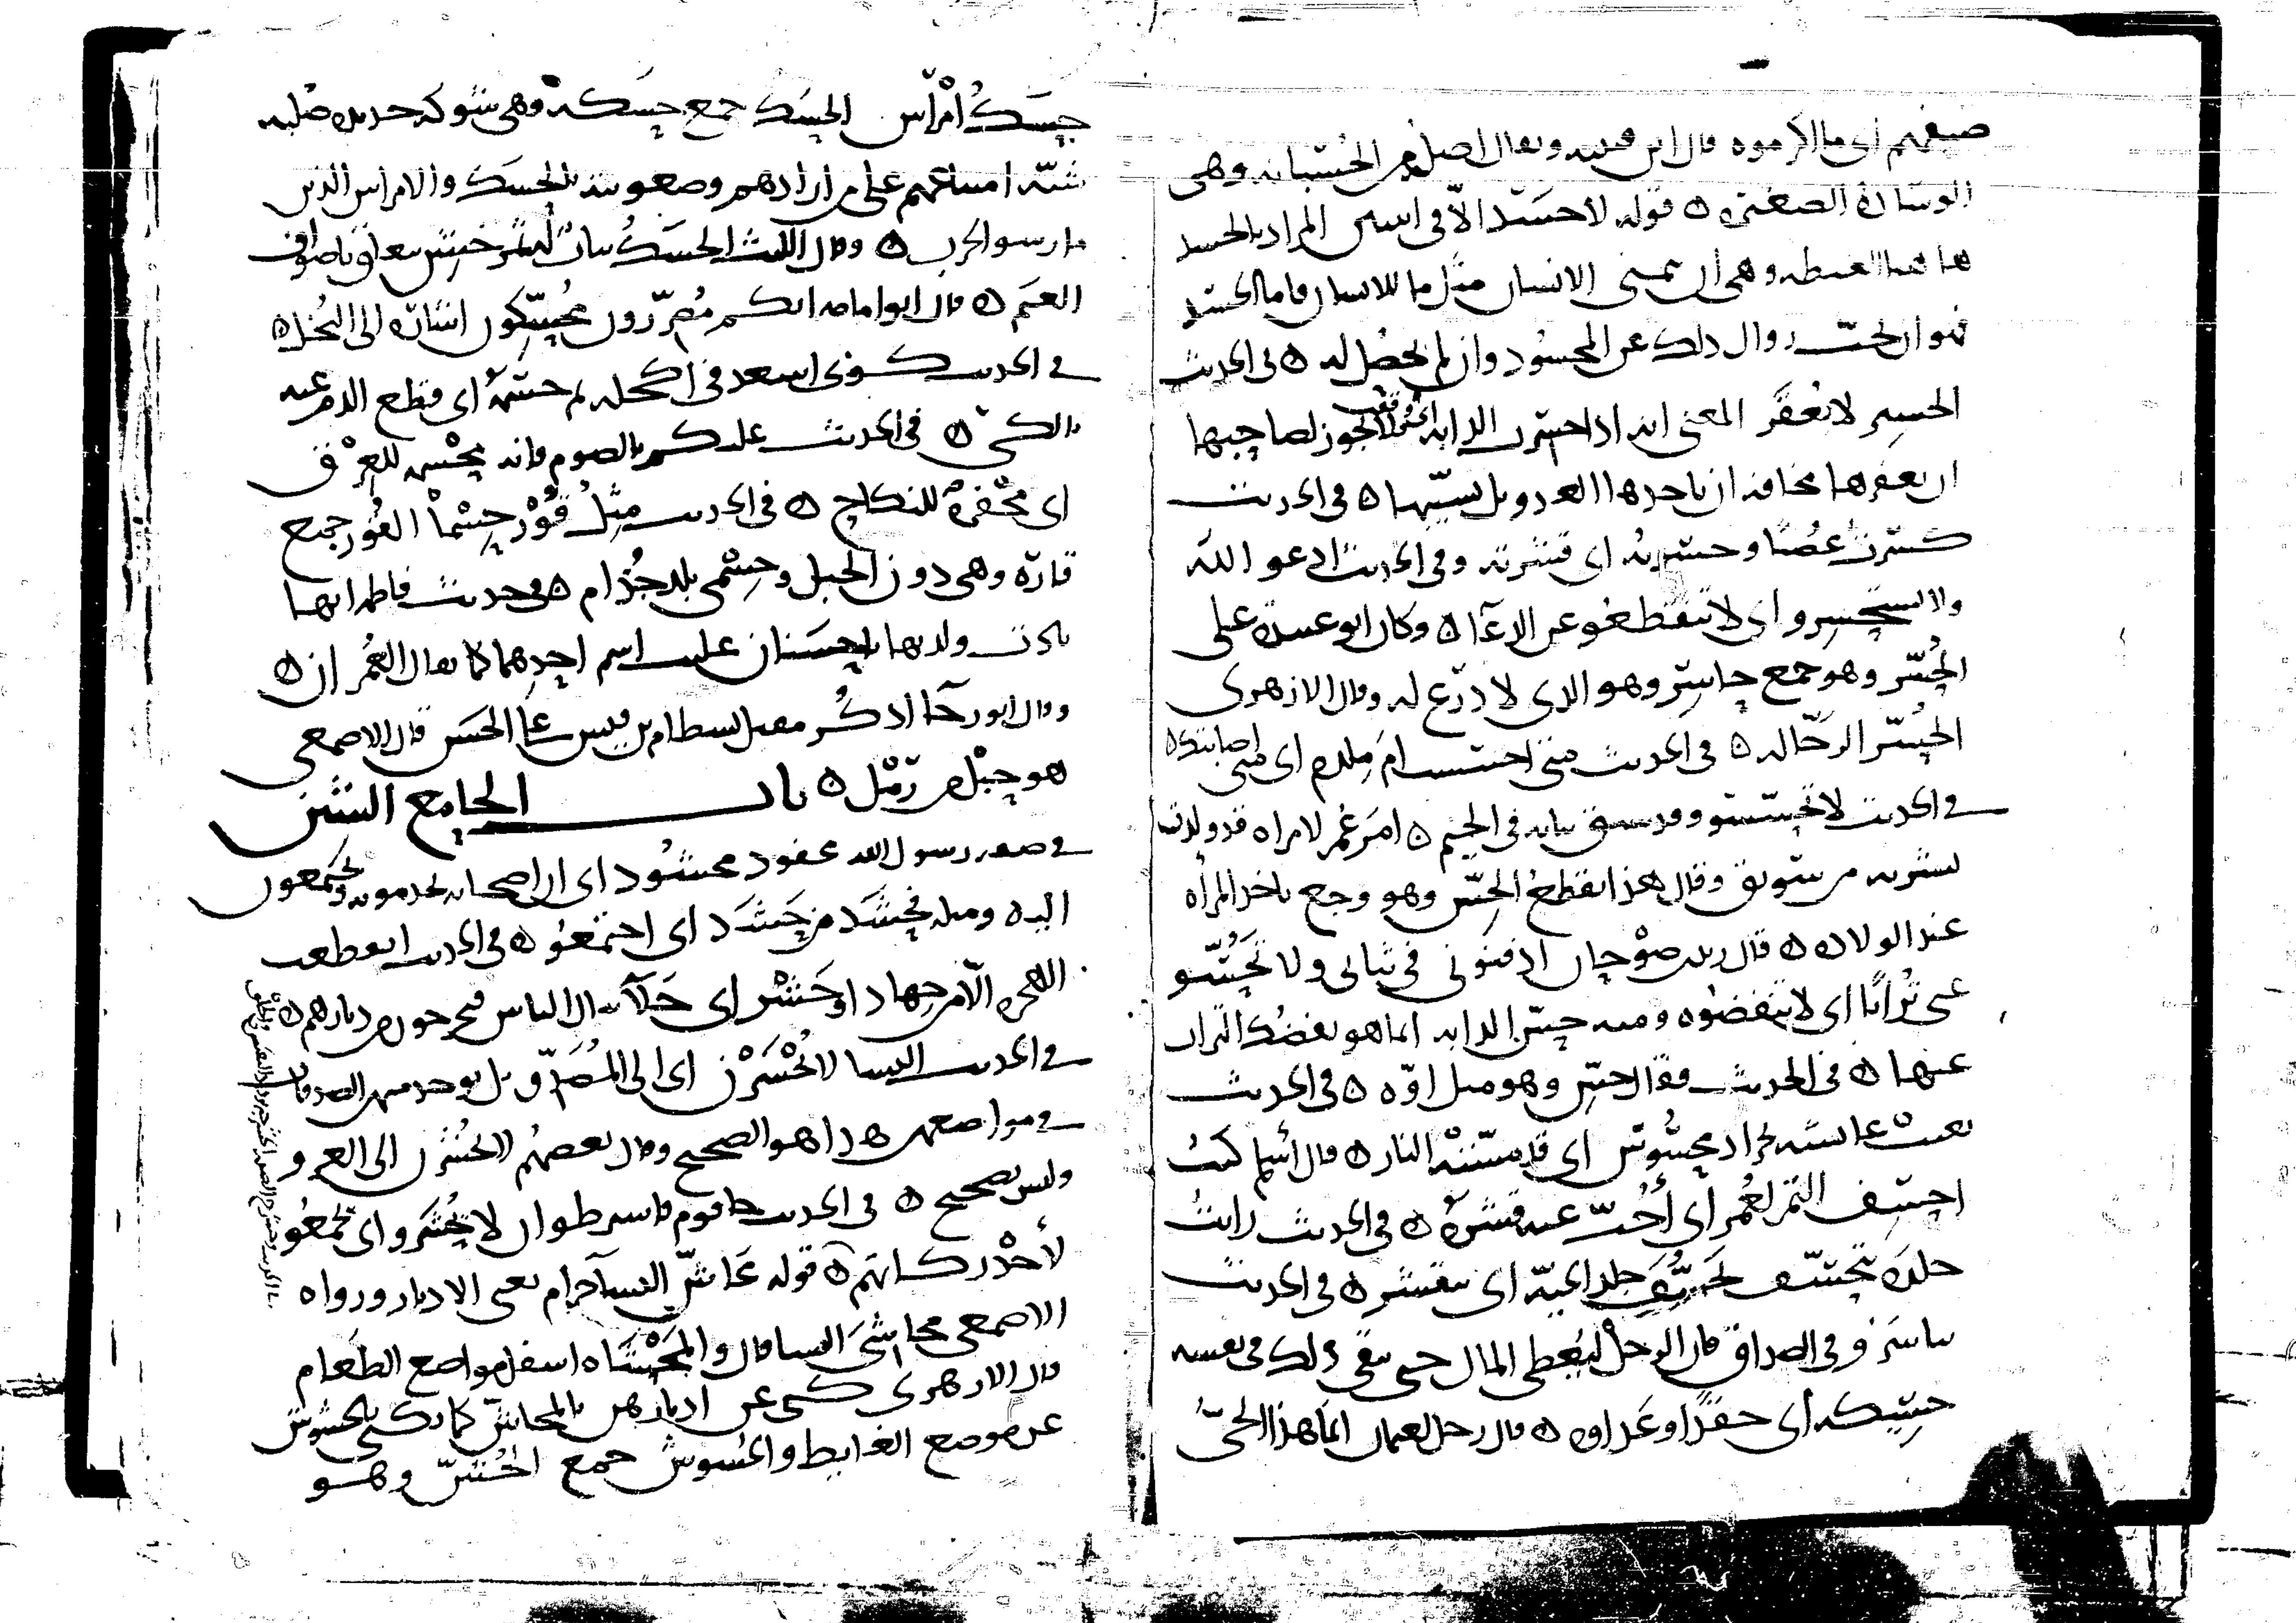 ضيفهم اى ما اكرموه قال ابن قتيبه ويقال اصله من الحُسْبانه وهى
الوسادة الصغيره ه قوله لا حَسَد الّا فى اثنين المراد بالحسد
هاهنا الغبطه وهى ان يتمنى الانسان مثل ما للانسان فاما الحسد
فهو ان يحبّ زوال ذلك عن المحسُود وان لم يحصُل له ه فى الحديث
الحسِير لا يُعقَر المعنى انه اذا حسرت الدابه اى وقفت فلا يجوز لصاحبها
ان يعقرها مخافه ان ياخذها العدو بل يُسيّبها ه فى الحديث
كسرتُ غصنًا وحسرته اى قشرته وفى الحديث ادعوا الله
ولا تستحسِروا اى لا تنقطعُوا عن الدعآ ه وكان ابو عبيدة على
الحُسّر وهو جمع حاسِر وهو الذى لا درع له وقال الازهرى
الحُسّر الرجّاله ه فى الحديث متى احسست ام مِلدم اى متى اصابتك ه
فى الحديث لا تحسّسوا وقد سبق بيانه فى الجيم ه امَر عُمر لامراه قد ولدت
بشربه من سويق وقال هذا يقطعُ الحِسّ وهو وجع ياخذ المرأه
عند الولاده ه قال زيد بن صوْحان ادفنونى فى ثيابى ولا تحُسّوا
عنى تُرابًا اى لا تنفضوه ومنه حسّ الدابه انما هو نفضُك التراب
عنها ه فى الحديث فقال حسِّ وهو مثل اوّه ه فى الحديث
بعثت عائشه بجراد محسُوس اى قد مسّته النار ه قال أسلم كنتُ
احسِف التمر لعُمر اى أحُتّ عنه قشرهُ ه فى الحديث رايتُ
جلده يتحسّف تحسُّفَ جلد الحيّه اى يتقشر ه فى الحديث
تياسَرُوا فى الصداق فان الرجل ليُعطى المال حتى يبقى ذلك فى نفسه
حسِيكه اى حقدًا وعداوه ه قال رجل لعثمان امّا هذا الحىّ
حَسَكٌ أمْراس الحسَك جمع حسَكة وهى شوكه حديده صُلبه
شبّه امتناعهم على من ارادهم وصعوبته بالحسَك والامراس الذين
مارسوا الحرب ه وقال الليث الحسَكُ نبات له ثمر خشن يتعلق باصواف
الغنم ه قال ابو امامه انكم مُصرّرون مُحسِّكون اشارة الى البُخل ه
فى الحديث كوى اسعد فى اكحله ثم حسَمهُ اى قطع الدم عنه
بالكىّ ه فى الحديث عليكم بالصوم فانه محْسمه للعِرْق
اى مَجْفرةٌ للنكاح ه فى الحديث مِثلُ قُوْر حِسْمَا القُور جمع
قارة وهى دون الجبل وحِسْمى بلد جُذام ه فى حديث فاطمه انها
نادت ولديها يا حسَنان غلب اسم احدِهما كما يقال العُمران ه
وقال ابو رجآ اذكُر مقتل بسطام بن قيس على الحَسَن قال الاصمعى
هو حبْل من رَمْل ه باب الحا مع الشين
فى صفه رسول الله محفود محشُود اى ان اصحابه يخدمونه ويجتمعون
اليه ومثله فحشد من حَشَدَ اى اجتمعُوا ه فى الحديث انقطعت
الهجره الّا من جهاد او حَشْر اى جَلآ ينال الناس فيخرجون من ديارهم ه
فى الحديث النسا لا يُحْشَرْن اى الى المُصَدّق بل يوخذ منهن الصدقات
فى مواضعهن هذا هو الصحيح وقال بعضهُم لا يحُشرن الى الغزو
وليس بصحيح ه فى الحديث جا قوم فاشترطوا ان لا يُحْشَروا اى يجمعُوا
لأخْذ زكاتهم ه قوله محَاشُّ النسآ حرام يعنى الادبار ورواه
الاصمعى محاشىَ النسا قال والمَحْشَاه اسفل مواضع الطعَام
قال الازهرى كنى عن ادبارهن بالمحاشّ كما يكنى بالحشوش
عن موضع الغايط والحُشوش جمع الحُشّ وهو